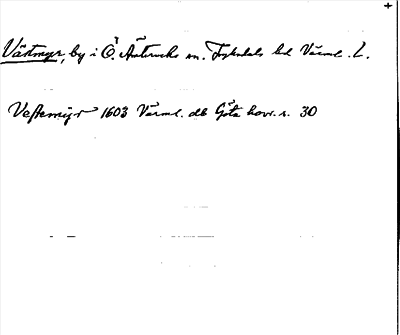 Västmyr, by i Ö. Ämterviks sn. Fryksdals hd Värml. L.
Vestemijr 1603 Värml. db Göta hovr. s. 30